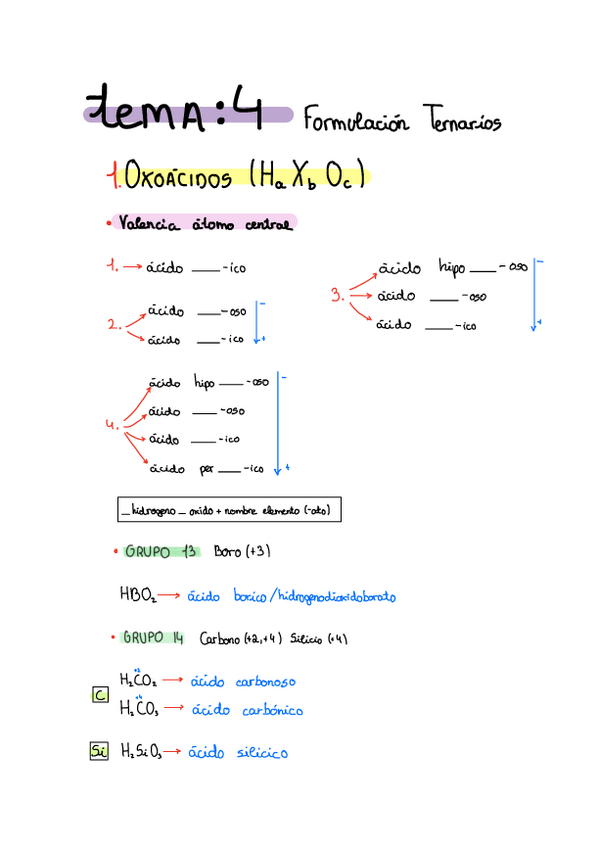 tema:4 Formulación Ternarios
1. OXOÁCIDOS (HaXbOc)
• Valencia átomo central
1. → ácido ___-ico
2. ácido ___-oso -
ácido ___-ico +
3. ácido hipo ___-oso -
ácido ___-oso
ácido ___-ico +
4. ácido hipo ___-oso -
ácido ___-oso
ácido ___-ico
ácido per ___-ico +
_hidrogeno_oxido + nombre elemento (-ato)
• GRUPO 13 Boro (+3)
HBO₂ → ácido borico/hidrogenodioxidoborato
• GRUPO 14 Carbono (+2,+4) Silicio (+4)
C
+2
H₂CO₂ → ácido carbonoso
+4
H₂CO₃ → ácido carbónico
Si H₂SiO₃ → ácido silicico